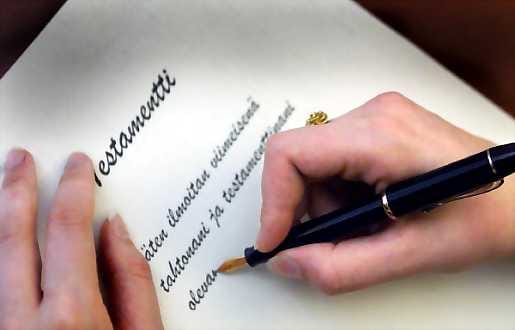 Testamentti
äten ilmoitan viimeisenä
tahtonani ja testamenttinani
olevan